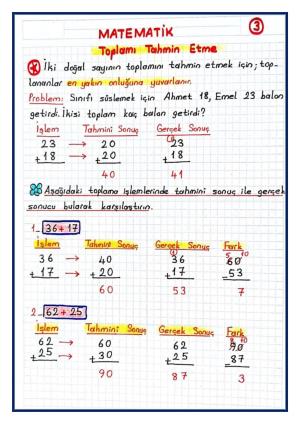 MATEMATİK
3
Toplamı Tahmin Etme
İki doğal sayının toplamını tahmin etmek için; top-
lananlar en yakın onluğa yuvarlanır.
Problem: Sınıfı süslemek için Ahmet 18, Emel 23 balon
getirdi. İkisi toplam kaç balon getirdi?
İşlem Tahmini Sonuç Gerçek Sonuç
23 → 20 (1)23
+18 → +20 +18
40 41
Aşağıdaki toplama işlemlerinde tahmini sonuç ile gerçek
sonucu bularak karşılaştırın.
1_ 36+17
İşlem Tahmini Sonuç Gerçek Sonuç Fark
(1) 5 10
36 → 40 36 60
+17 → +20 +17 -53
60 53 7
2_ 62+25
İşlem Tahmini Sonuç Gerçek Sonuç Fark
8 10
62 → 60 62 90
+25 → +30 +25 87
90 87 3